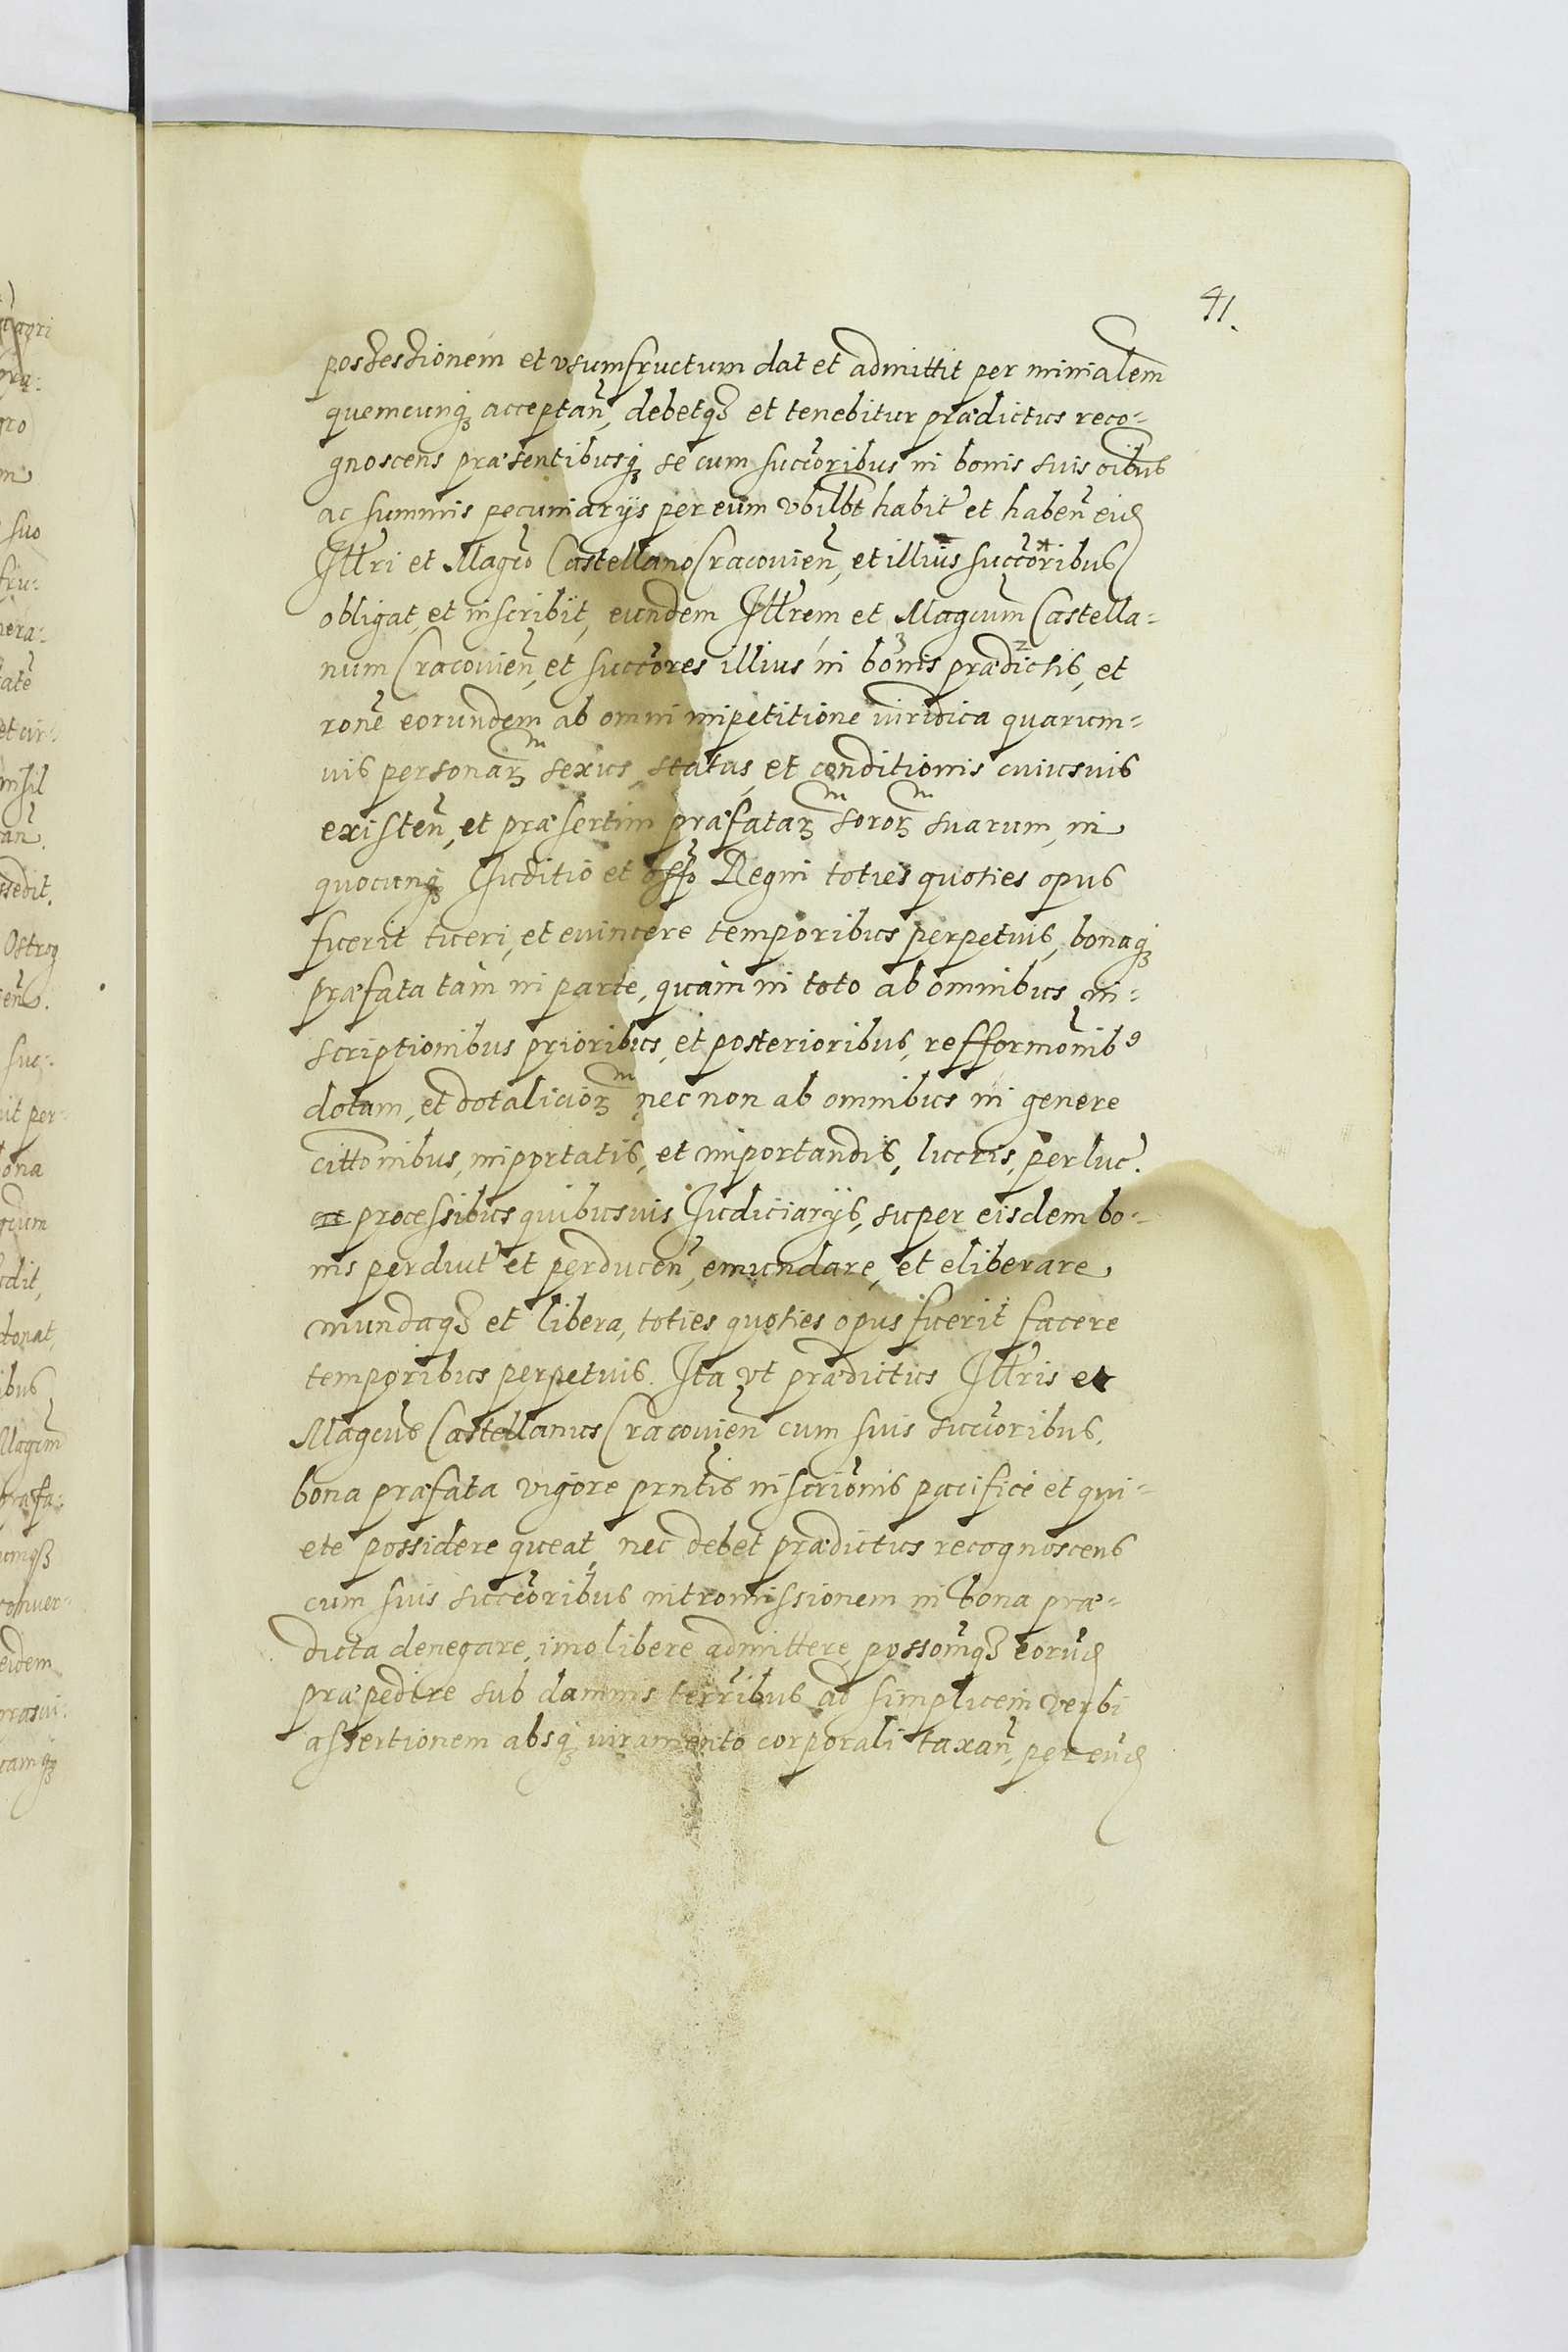 41.
possessionem et vsumfructum dat et admittit per minialem
quemcunq acceptan, debetqz et tenebitur prædictus reco-
gnoscens præsentibusq se cum succoribus in bonis suis oibus
ac summis pecuniarijs per eum vbilbt habit et haben eid
Illri et Magco Castellano Cracouien, et illius succoribus
obligat, et inscribit, eundem Illrem et Magcum Castella-
num Cracouien, et succores illius in bonis prædictis, et
rone eorundem ab omni impetitione iuridica quarum-
uis personarum sexus, status, et conditionis cuiusuis
existen, et præsertim præfatarum sororum suarum, in
quocunq Iuditio et offo Regni toties quoties opus
fuerit tueri, et euincere temporibus perpetuis, bonaq
præfata tàm in parte, quàm in toto ab omnibus in-
scriptionibus prioribus, et posterioribus, refformonib9
dotum, et dotaliciorum nec non ab omnibus in genere
cittonibus, importatis, et importandis, lucris, perluc.
processibus quibusuis Iudiciarijs, super eisdem bo-
nis perduct et perducen, emundare, et eliberare
mundaqz et libera, toties quoties opus fuerit facere
temporibus perpetuis. Ita vt prædictus Illris et
Magcus Castellanus Cracouien cum suis succoribus,
bona præfata vigore prntis inscrionis pacificè et qui-
ete possidere queat, nec debet prædictus recognoscens
cum suis succoribus intromissionem in bona præ-
dicta denegare, imo libere admittere, possomqz eorud
præpedire sub damnis terribus ad simplicem verbi
assertionem absq iuramento corporali taxan, per eud